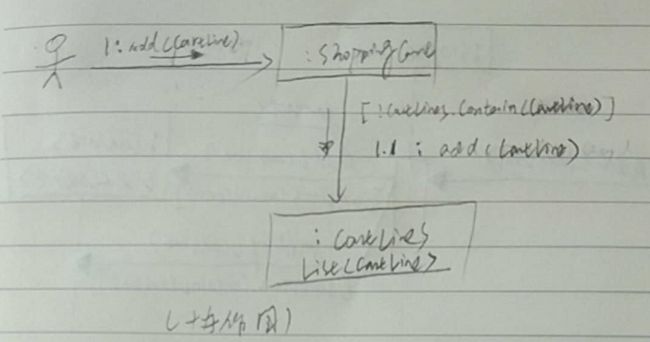 1: add(CartLine)
: Shopping Cart
[!CartLines.Contain(CartLine)]
1.1 : add(CartLine)
: CartLines
List<CartLine>
(协作图)